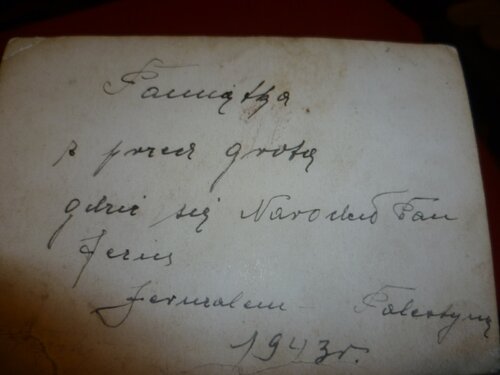 Pamiątka
z przed grotą
gdzie się Narodził Pan
Jezus
Jerusalem - Palestyna
1943r.